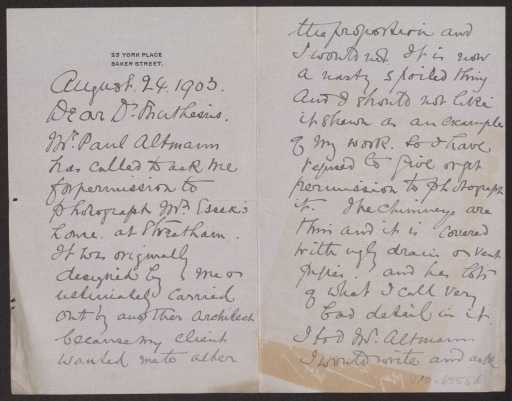 23 YORK PLACE
BAKER STREET.
August. 24. 1903.
Dear Dr. Muthesius.
Mr. Paul Altmann
has called to ask me
for permission to
photograph Mr. Essex's
home. at Streatham.
It was originally
designed by me or
ultimately carried
out by another architect
because my client
wanted me to alter
the proportion and
I would not. It is now
a nasty spoiled thing
And I should not like
it shown as an example
of my work. So I have
refused to give or get
permission to photograph
it. The chimneys are
thin and it is covered
with ugly drain or vent
pipes. and has lots
of what I call very
bad detail in it.
I told Mr. Altmann
I would write and ask